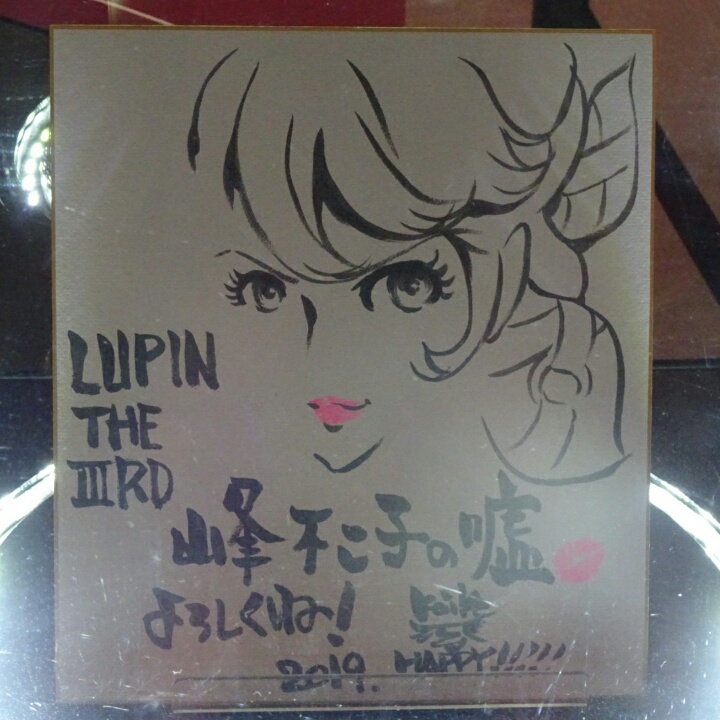 LUPIN
THE
IIIRD
峰不二子の嘘
よろしくね!
2019.
HAPPY!!!!!